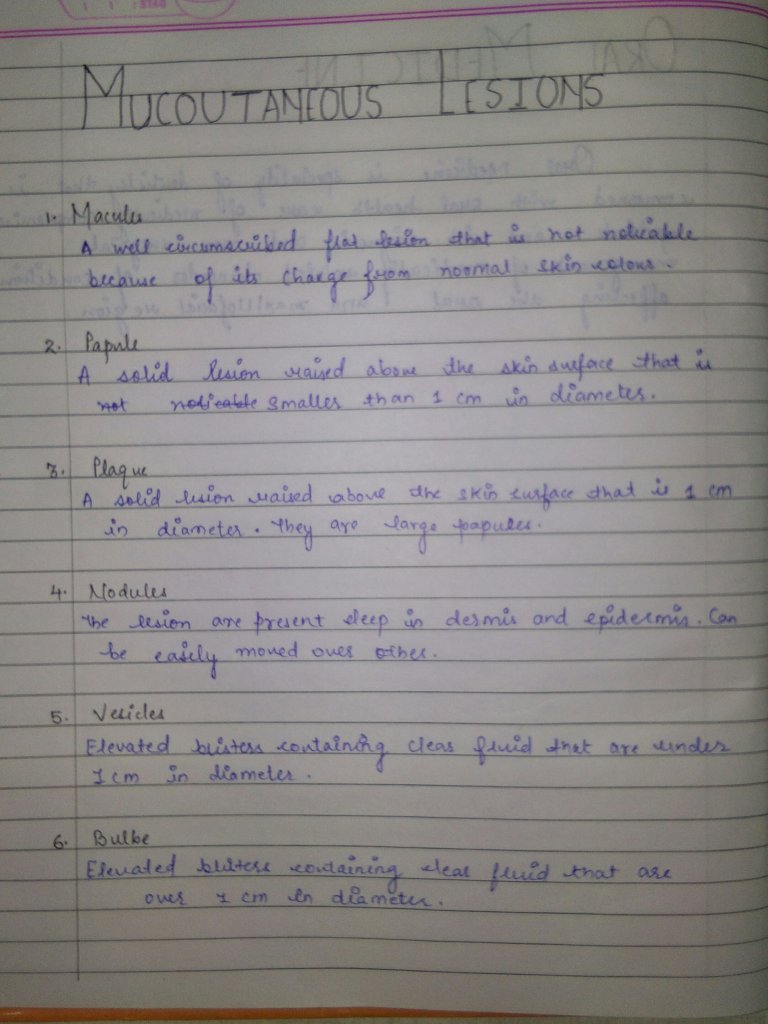 MUCOUTANEOUS LESIONS
1. Macules
A well circumscribed flat lesion that is not noticable
because of its change from normal skin colour.
2. Papule
A solid lesion raised above the skin surface that is
not noticeable smaller than 1 cm in diameter.
3. Plaque
A solid lesion raised above the skin surface that is 1 cm
in diameter. They are large papules.
4. Nodules
The lesion are present deep in dermis and epidermis. Can
be easily moved over other.
5. Vesicles
Elevated blisters containing clear fluid that are under
1 cm in diameter.
6. Bulbe
Elevated blisters containing clear fluid that are
over 1 cm in diameter.